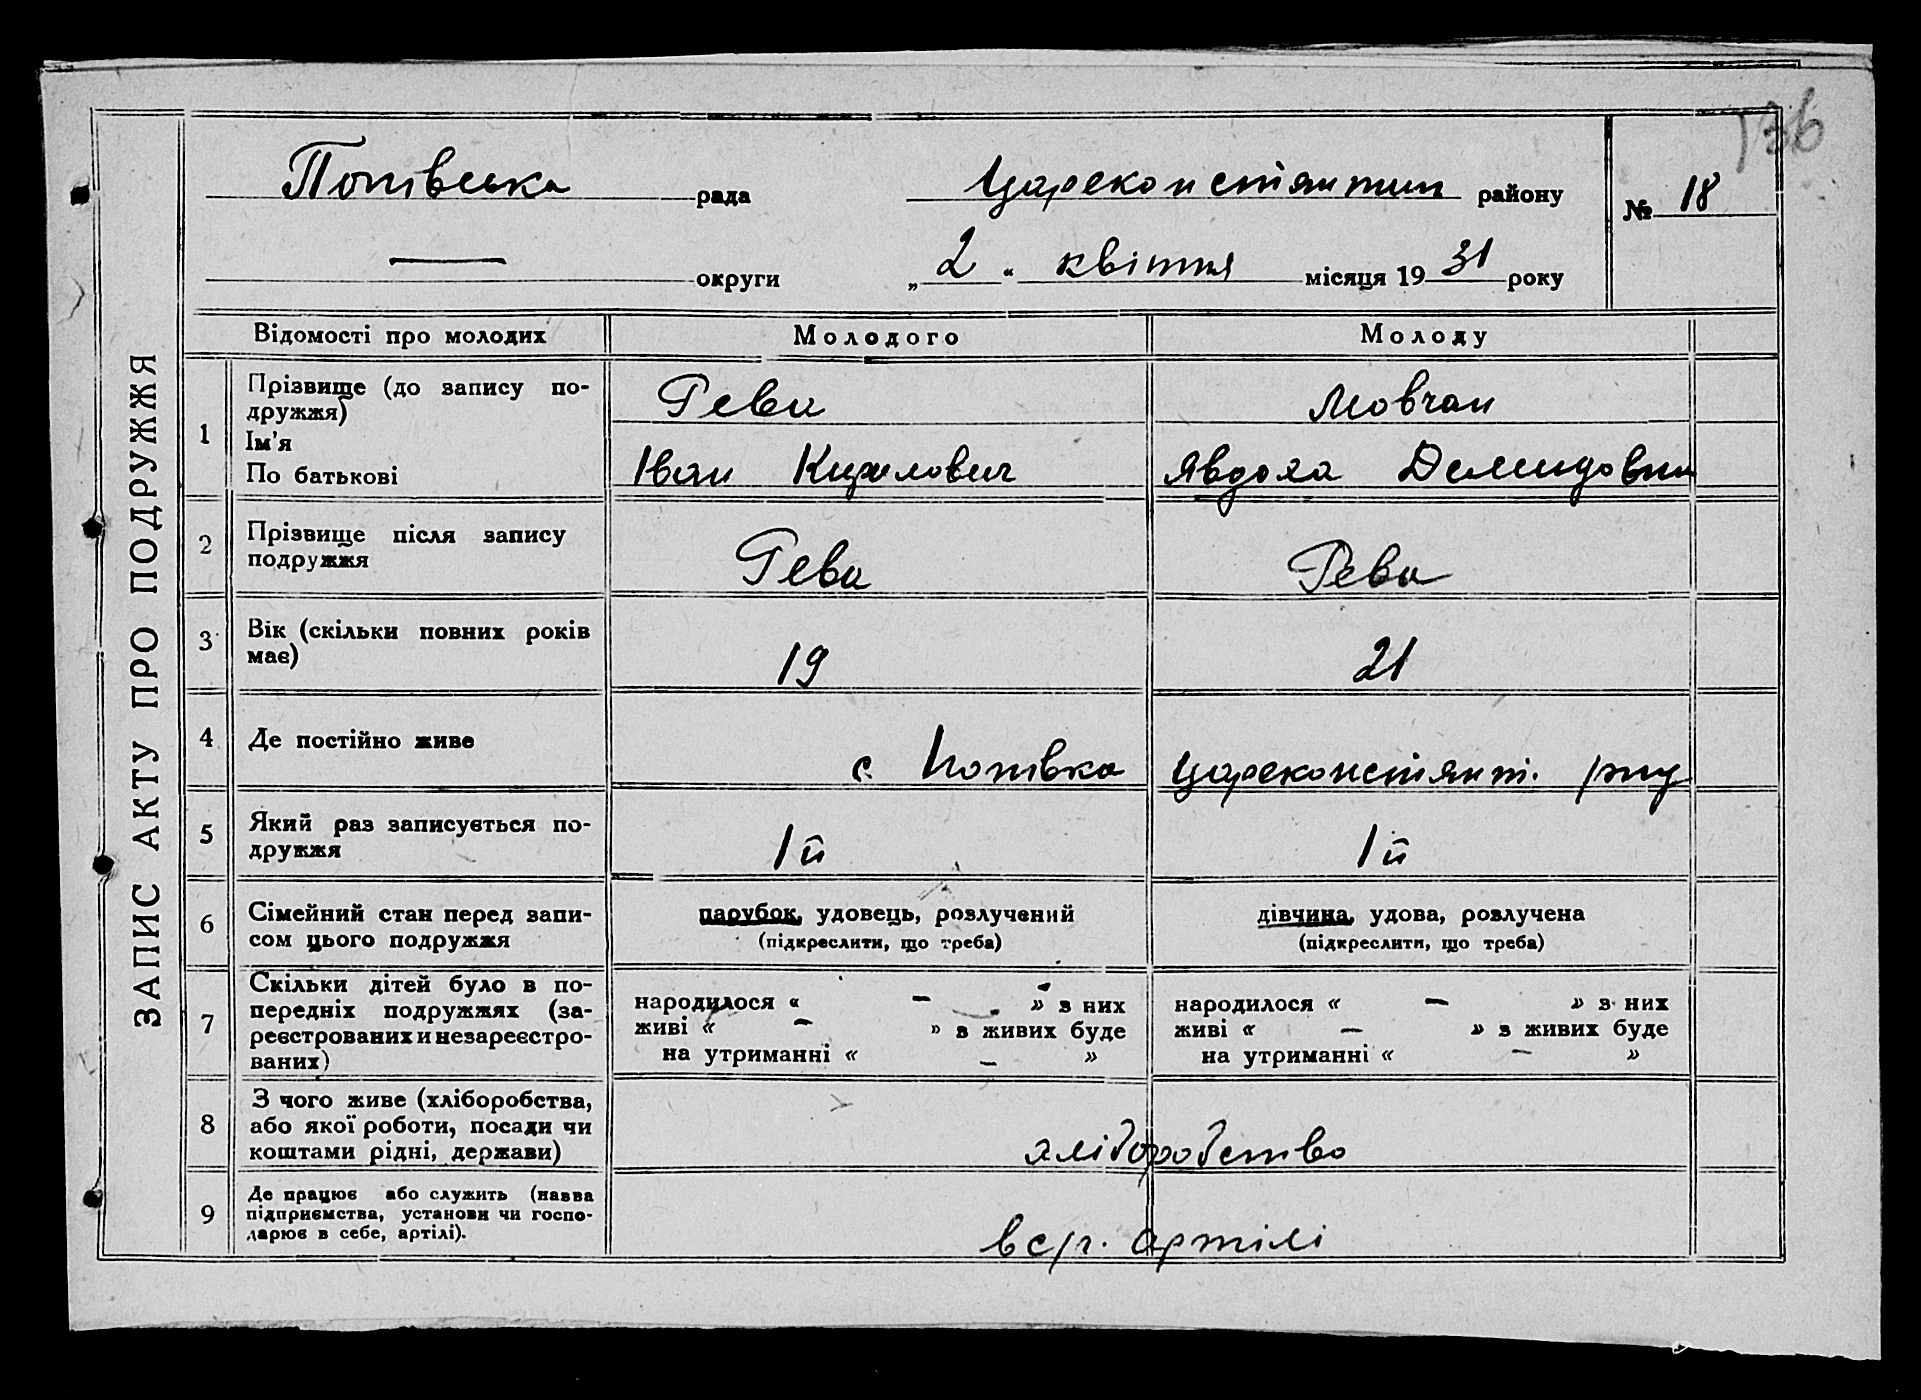 136
Попівська рада Царекопстянтип району № 18
— округи „2“ квітня місяця 1931 року
ЗАПИС АКТУ ПРО ПОДРУЖЖЯ
Відомості про молодих Молодого Молоду
1 Прізвище (до запису по-
дружжя) Рева Мовчан
Ім'я
По батькові Іван Кирилович Явдоха Демидовна
2 Прізвище після запису
подружжя Рева Рева
3 Вік (скільки повних років
має) 19 21
4 Де постійно живе с. Попівка Цареконстянт. рну
5 Який раз записується по-
дружжя 1й 1й
6 Сімейний стан перед запи- парубок, удовець, розлучений дівчина, удова, розлучена
сом цього подружжя (підкреслити, що треба) (підкреслити, що треба)
7 Скільки дітей було в по-
передніх подружжях (за-
реєстрованих и незареєстро-
ваних)
народилося « — » з них
живі « — » з живих буде
на утриманні « — »
народилося « — » з них
живі « — » з живих буде
на утриманні « — »
8 З чого живе (хліборобства,
або якої роботи, посади чи
коштами рідні, держави) хліборобство
9 Де працює або служить (назва
підприємства, установи чи госпо-
дарює в себе, артілі). в с/г. артілі